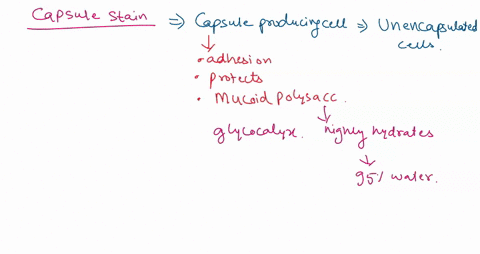 Capsule Stain ⇒ Capsule producing cell ⇒ Unencapsulated cells.
↓
• adhesion
• protects
• Mucoid polysacc.
↓
glycocalyx. highly hydrates
↓
95% water.